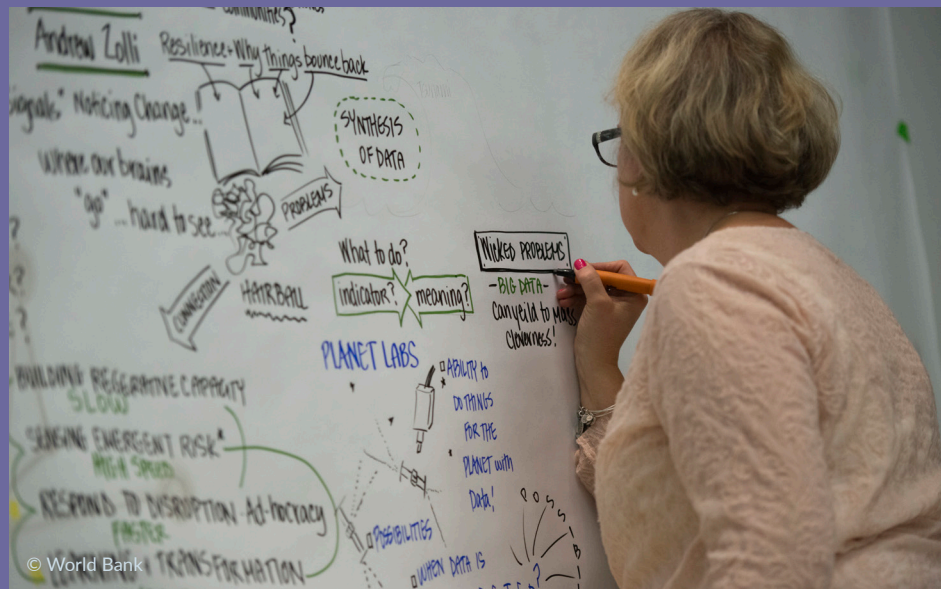 communities?
Andrew Zolli
Resilience-Why things bounce back
Noticing Change..
where our brains
"go"... hard to see
SYNTHESIS
OF DATA
PROBLEMS
CONNECTION
HAIRBALL
What to do?
indicator?
meaning?
WICKED PROBLEMS:
-BIG DATA-
can yeild to Mass
cleverness!
PLANET LABS
ABILITY to
DO THINGS
FOR THE
PLANET with
Data!
BUILDING REGERATIVE CAPACITY
SLOW
SENSING EMERGENT RISK*
HIGH SPEED
RESPOND TO DISRUPTION-Ad-hocracy
FASTER
TRANSFORMATION
POSSIBILITIES
WHEN DATA IS
POSSIB
© World Bank